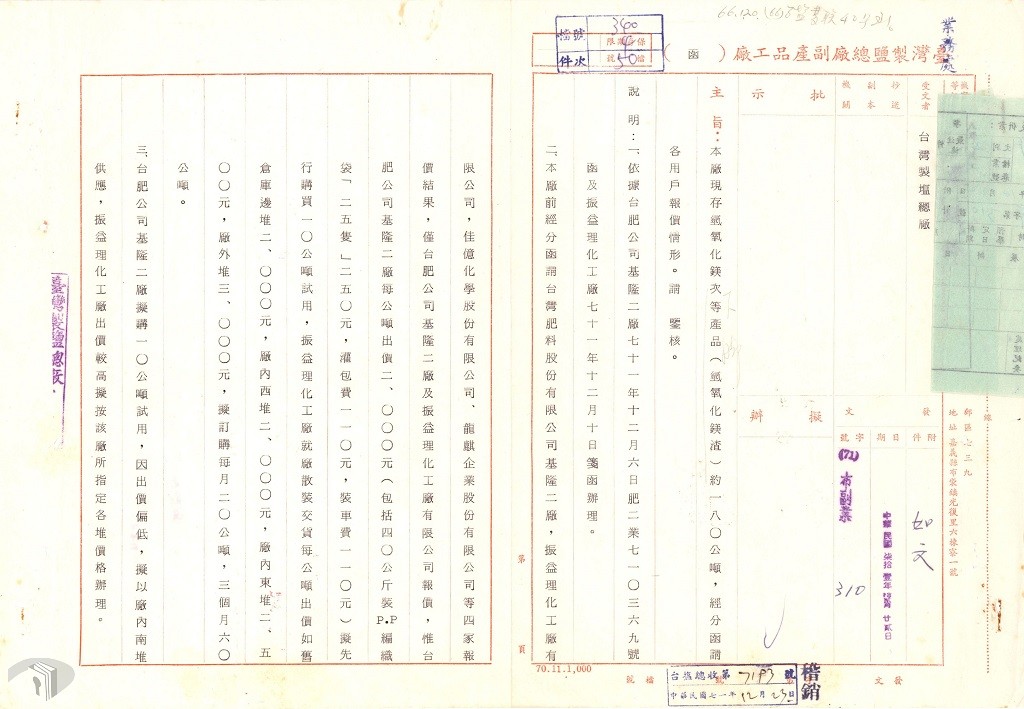 臺灣製鹽總廠副產品工廠（函）
業務處
檔號
件次
340
4
50
保存期限
檔號
受文者
台灣製塩總廠
抄送副本機關
批示
擬辦
發文
附件
日期
字號
如文
中華民國柒拾壹年拾貳月廿貳日
(71)布副業
310
郵區之三九
地址嘉義縣布袋鎮光復里六條寮一號
主旨：本廠現存氫氧化鎂次等產品（氫氧化鎂渣）約一八〇公噸，經分函請
各用戶報價情形。請　鑒核。
說明：一、依據台肥公司基隆二廠七十一年十二月六日肥二業七一〇三六九號
函及振益理化工廠七十一年十二月十日箋函辦理。
二、本廠前經分函請台灣肥料股份有限公司基隆二廠，振益理化工廠有
第　頁
限公司，佳億化學股份有限公司、龍麒企業股份有限公司等四家報
價結果，僅台肥公司基隆二廠及振益理化工廠有限公司報價，惟台
肥公司基隆二廠每公噸出價二、〇〇〇元（包括四〇公斤裝P.P編織
袋「二五隻」二五〇元，灌包費一一〇元，裝車費一一〇元）擬先
行購買一〇公噸試用，振益理化工廠就廠散裝交貨每公噸出價如舊
倉庫邊堆二、〇〇〇元，廠內西堆二、〇〇〇元，廠內東堆二、五
〇〇元，廠外堆三、〇〇〇元，擬訂購每月二〇公噸，三個月六〇
公噸。
三、台肥公司基隆二廠擬購一〇公噸試用，因出價偏低，擬以廠內南堆
供應，振益理化工廠出價較高擬按該廠所指定各堆價格辦理。
臺灣製鹽總廠
70.11.1,000
檔號
發文
台塩總收第7193號
中華民國七一年12月23日
楷銷